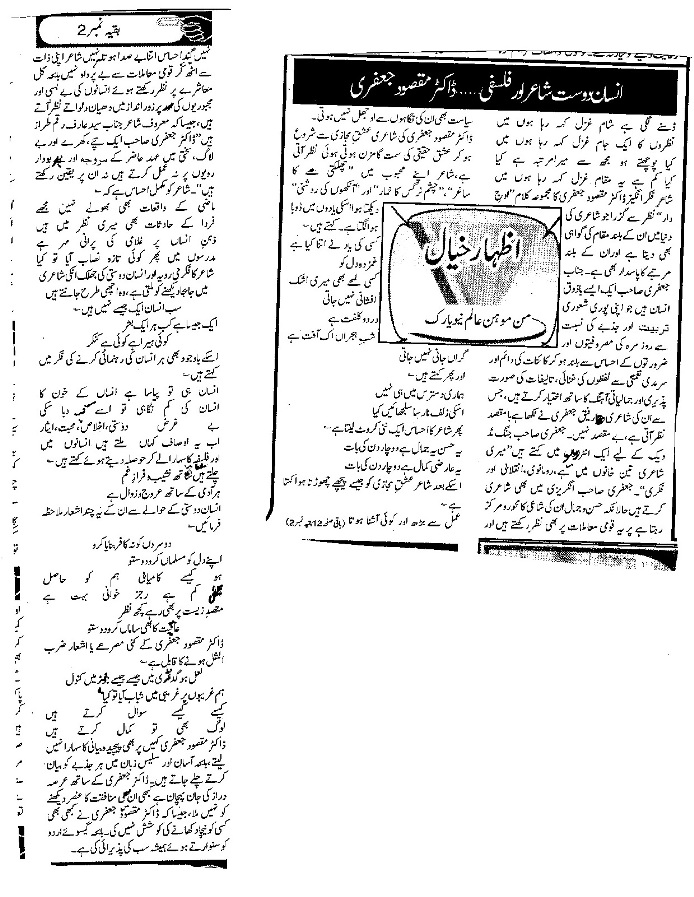 انسان دوست شاعر اور فلسفی ..... ڈاکٹر مقصود جعفری
ڈسنے لگی ہے شام غزل کہہ رہا ہوں میں
نظروں کا ایک جام غزل کہہ رہا ہوں میں
کیا پوچھتے ہو مجھ سے میرا مرتبہ ہے کیا
کیا کم ہے یہ مقام غزل کہہ رہا ہوں میں
شاعر فکر انگیز ڈاکٹر مقصود جعفری کا مجموعہ کلام "اوج
دار" نظر سے گزرا جو شاعری کی
دنیا میں ان کے بلند مقام کی گواہی
بھی دیتا ہے اور ان کے بلند
مرتبے کا پاسدار بھی ہے۔ جناب
جعفری صاحب ایک ایسے باذوق
انسان ہیں جو اپنی پوری شعوری
تربیت اور جذبے کی نسبت
سے روزمرہ کی مصروفیتوں اور
ضرورتوں کے احساس سے بلند ہو کر کائنات کی دائم اور
سرمدی نغمگی سے لفظوں کی غنائی، تالیفات کی صورت
پذیری اور جمالیاتی آہنگ کا ساتھ اختیار کرتے ہیں، جس
سے ان کی شاعری بے مقصد
نظر آتی ہے، بے مقصد نہیں۔ جعفری صاحب جنگ مڈ
ویک کے لیے ایک انٹرویو میں کہتے ہیں "میری
شاعری تین خانوں میں ہے، رومانوی، انقلابی اور
فکری"۔ جعفری صاحب انگریزی میں بھی شاعری
کرتے ہیں حالانکہ حسن و جمال ان کی شاعری کا محور و مرکز
رہتا ہے پر یہ قومی معاملات پر بھی نظر رکھتے ہیں اور
اظہار خیال
من موہن عالم نیویارک
سیاست بھی ان کی نگاہوں سے اوجھل نہیں ہوتی۔
ڈاکٹر مقصود جعفری کی شاعری عشق مجازی سے شروع
ہو کر عشق حقیقی کی سمت گامزن ہوتی ہوئی نظر آتی
ہے، شاعر اپنے محبوب میں "چھلکتی مے کا
ساغر"، "چشم نرگس کا خمار" اور "آنکھوں کی روشنی"
دیکھتا ہوا اسکی یادوں میں ڈوبا
ہوا لگتا ہے۔ کہتے ہیں۔
کسی کی یاد نے اتنا کیا ہے
غمزدہ دل کو
کسی لمحے بھی میری اشک
افشانی نہیں جاتی
درد کلفت ہے
شب ہجراں اک آفت ہے
گراں جانی نہیں جاتی
اور پھر کہتے ہیں۔
ہماری دسترس میں ہی نہیں
اسکی زلف تار سلجھائیں کیا
پھر شاعر کا احساس ایک نئی کروٹ لیتا ہے۔
یہ حسن یہ جمال ہے دو چار دن کی بات
یہ عارضی کمال ہے دو چار دن کی بات
اسکے بعد شاعر عشق مجازی کو جیسے پیچھے چھوڑتا ہوا کہتا
ہے۔
عمل سے بڑھ اور کوئی آشنا ہوتا (باقی صفحہ 12 بقیہ نمبر 2)
بقیہ نمبر 2
نہیں احساس اتنا بے صدا ہوتا شاعر اپنی ذات
سے اٹھ کر قومی معاملات سے بے پرواہ نہیں بلکہ کل
معاشرے پر نظر رکھتے ہوئے انسانوں کی بے بسی اور
مجبوریوں کی پر زور انداز میں دھیان دلواتے نظر آتے
ہیں، جیسا کہ معروف شاعر جناب سید عارف رقم طراز
ہیں "ڈاکٹر جعفری صاحب ایک سچے، کھرے اور بے
لاگ، سختی میں عہد حاضر کے مروجہ اور بودار
رویوں پر نہ عمل کرتے ہیں نہ ان پر یقین رکھتے
ہیں"۔ شاعر کو مکمل احساس ہے کہ۔
ماضی کے واقعات بھی بھولے نہیں مجھے
فردا کے حادثات بھی میری نظر میں ہیں
ذہن انساں پر غلامی کی پرانی مہر ہے
مدرسوں میں پھر کوئی تازہ نصاب آیا تو کیا
شاعر کا فکری رویہ اور انسان دوستی کی جھلک انکی شاعری
میں جابجا دیکھنے کو ملتی ہے، وہ اچھی طرح جانتے ہیں
سب انسان ایک جیسے نہیں ہیں۔
ایک جیسا ہے کب ہر ایک بشر
کوئی ہیرا ہے کوئی ہے کنکر
اسکے باوجود بھی ہر انسان کی رہنمائی کرنے کی فکر میں
کہتے ہیں۔
انسان ہی تو پیاسا ہے انساں کے خون کا
انسان کی کم نگاہی تو اسے دبا سکی
بے غرض دوستی، اخلاص، محبت، ایثار
اب یہ اوصاف کہاں ملتے ہیں انسانوں میں
اور فلسفہ کا سہارا لے کر حوصلہ دیتے ہوئے کہتے ہیں۔
چلتے ہیں ساتھ نشیب و فراز غم
ہر آدمی کے ساتھ عروج و زوال ہے
انسان دوستی کے حوالے سے ان کے یہ چند اشعار ملاحظہ
فرمائیں۔
دوسروں کو نہ کافر بنایا کرو
اپنے دل کو مسلماں کرو دوستو
ہو کیسے کامیابی ہم کو حاصل
کم ہے رجز خوانی بہت ہے
مقصد زیست پر بھی رہے کچھ نظر
عاقبت کا بھی ساماں کرو دوستو
ڈاکٹر مقصود جعفری کے کئی مصرعے یا اشعار ضرب
المثل ہونے کا قابل ہے۔
لعل ہو گدڑی میں جیسے جیسے میں کنول
ہم غریبوں پر غریبی میں شباب آیا تو کیا
کیسے کیسے سوال کرتے ہیں
لوگ بھی تو کمال کرتے ہیں
ڈاکٹر مقصود جعفری کہیں پر بھی پیچیدہ بیانی کا سہارا نہیں
لیتے، بلکہ آسان اور سلیس زبان میں ہر جذبے کو بیان
کرتے چلے جاتے ہیں۔ ڈاکٹر جعفری کے ساتھ عرصہ
دراز کی جان پہچان ہے کبھی ان میں منافقت کا عنصر دیکھنے
کو نہیں ملا، جیسا کہ ڈاکٹر مقصود جعفری نے کبھی بھی
کسی کو نیچا دکھانے کی کوشش نہیں کی۔ بلکہ گیسوئے اردو
کو سنوارتے ہوئے ہمیشہ سب کی پذیرائی کی ہے۔